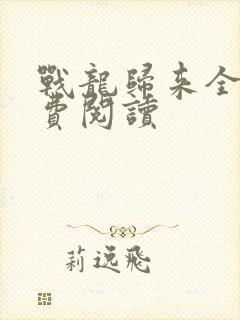 戰龍歸來全
費閱讀
莉逸飛